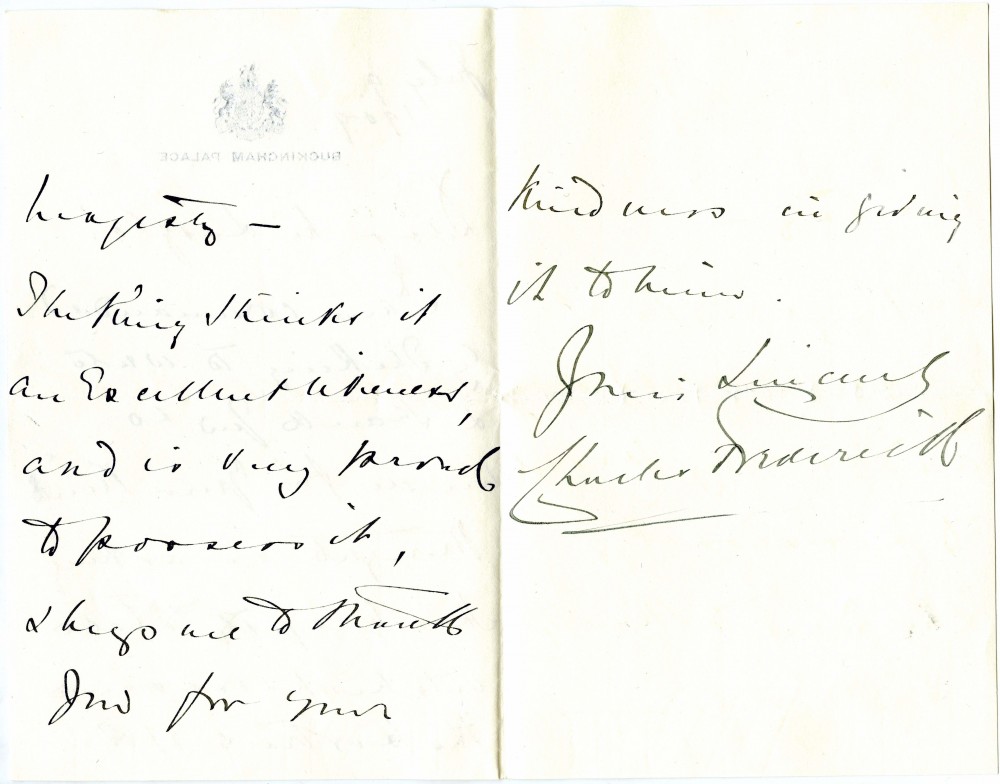 BUCKINGHAM PALACE
Majesty —
The King thinks it
an Excellent likeness,
and is very proud
to possess it,
& begs me to thank
You for your
kindness in giving
it to him.
Yours Sincerely
Charles Frederick